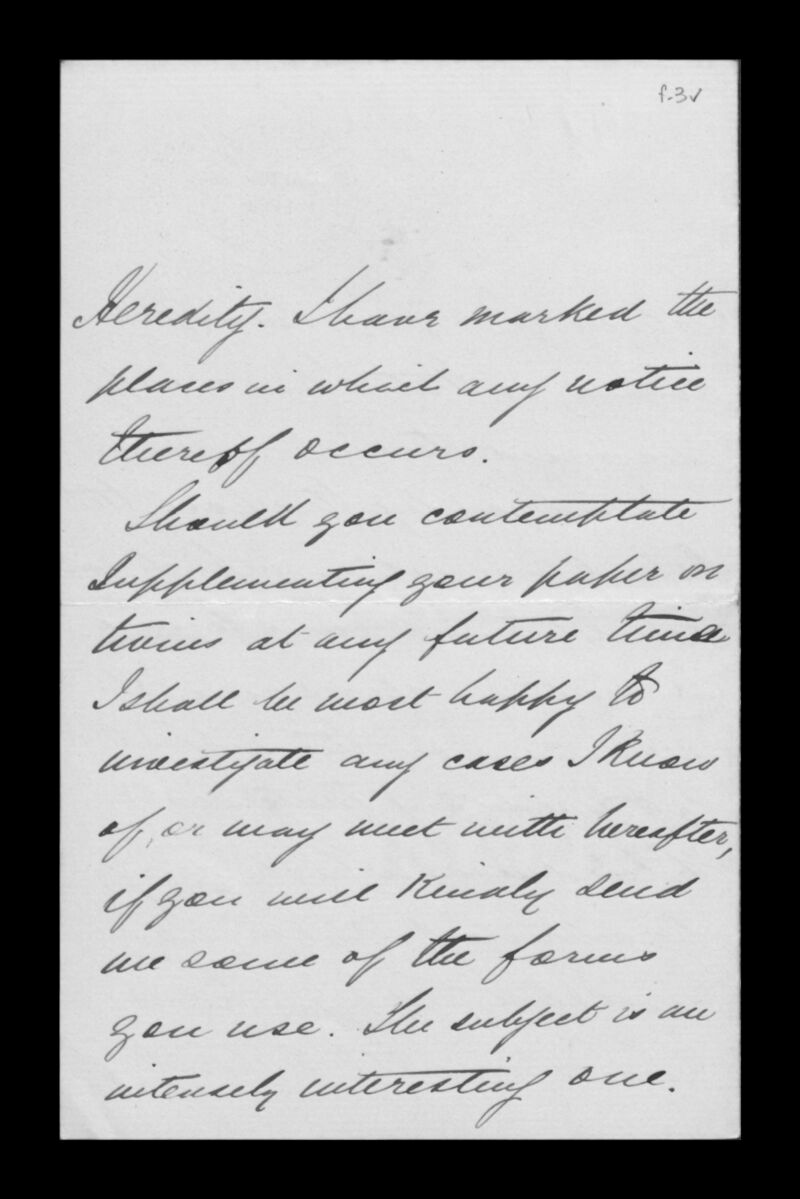 f.3v
Heredity. I have marked the
places in which any notice
thereof occurs.
Should you contemplate
supplementing your paper on
twins at any future time
I shall be most happy to
investigate any cases I know
of, or may meet with hereafter,
if you will kindly send
me some of the forms
you use. The subject is an
intensely interesting one.